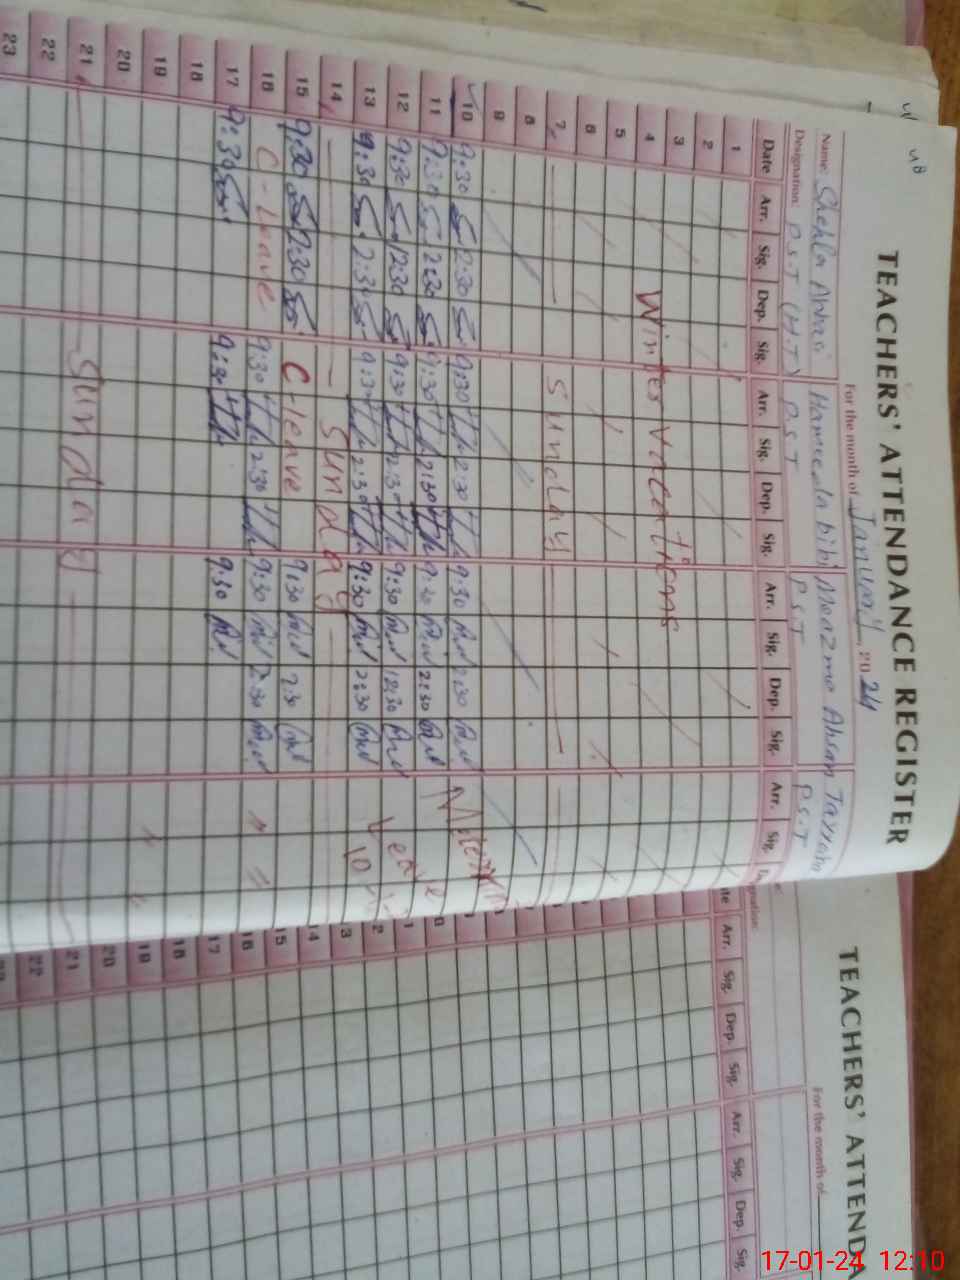 48
TEACHERS' ATTENDANCE REGISTER
For the month of January, 2024
Name: Shehla Abbasi Hameeda bibi Moazma Ahsan Tayyaba
Designation: P.S.T (H.T) P.S.T P.S.T P.S.T
Date Arr. Sig. Dep. Sig. Arr. Sig. Dep. Sig. Arr. Sig. Dep. Sig. Arr. Sig.
1
2
3
4 Winter Vacations
5
6
7 Sunday
8
9
10 9:30 2:30 9:30 2:30 9:30 2:30
11 9:30 2:30 9:30 2:30 9:30 2:30
12 9:30 12:30 9:30 2:30 9:30 12:30
13 9:30 2:30 9:30 2:30 9:30 2:30
14 Sunday
15 9:30 2:30 C-leave 9:30 2:30
16 C-Leave 9:30 2:30 9:30 2:30 " "
17 9:30 9:30 9:30
18
19
20
21 Sunday
22
23
TEACHERS' ATTENDA
For the month of
Arr. Sig. Dep. Sig. Arr. Sig. Dep. Sig.
14
15
16
17
18
19
20
21
22
17-01-24 12:10